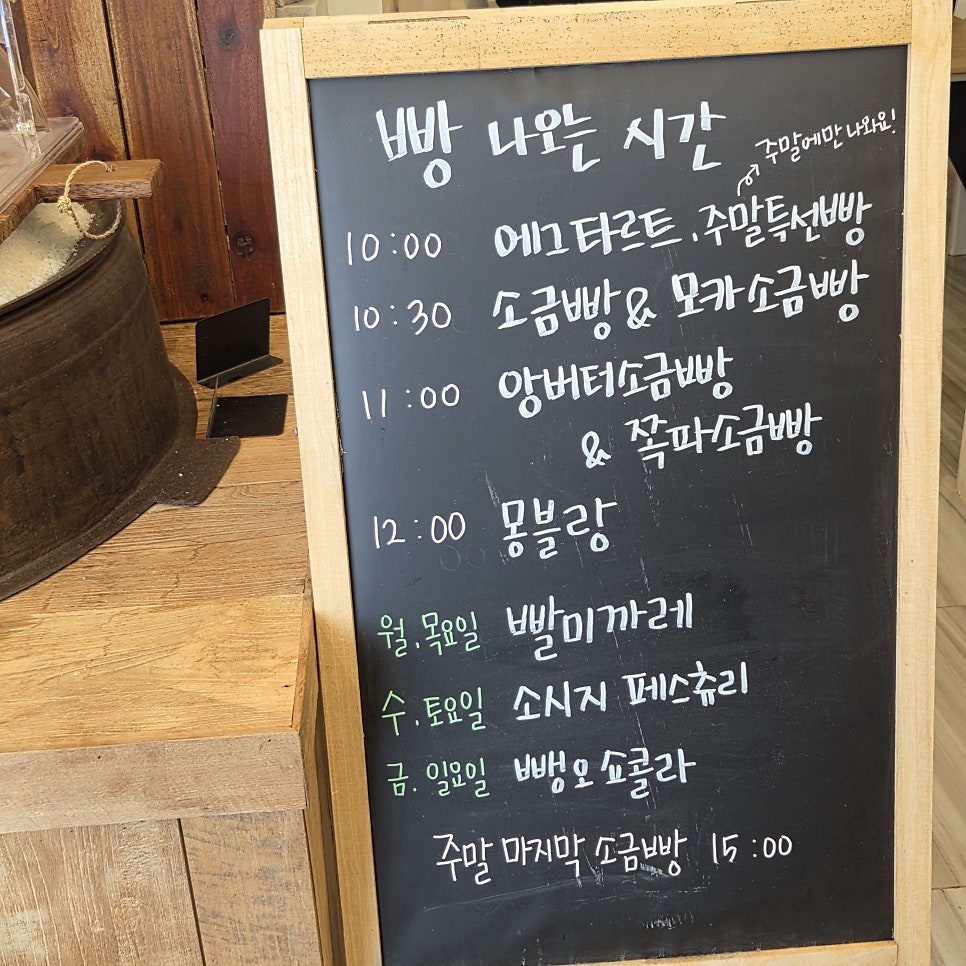 빵 나오는 시간
주말에만 나와요!
10:00 에그타르트.주말특선빵
10:30 소금빵 & 모카소금빵
11:00 앙버터소금빵
& 쪽파소금빵
12:00 몽블랑
월.목요일 빨미까레
수.토요일 소시지 페스츄리
금.일요일 뺑오쇼콜라
주말 마지막 소금빵 15:00